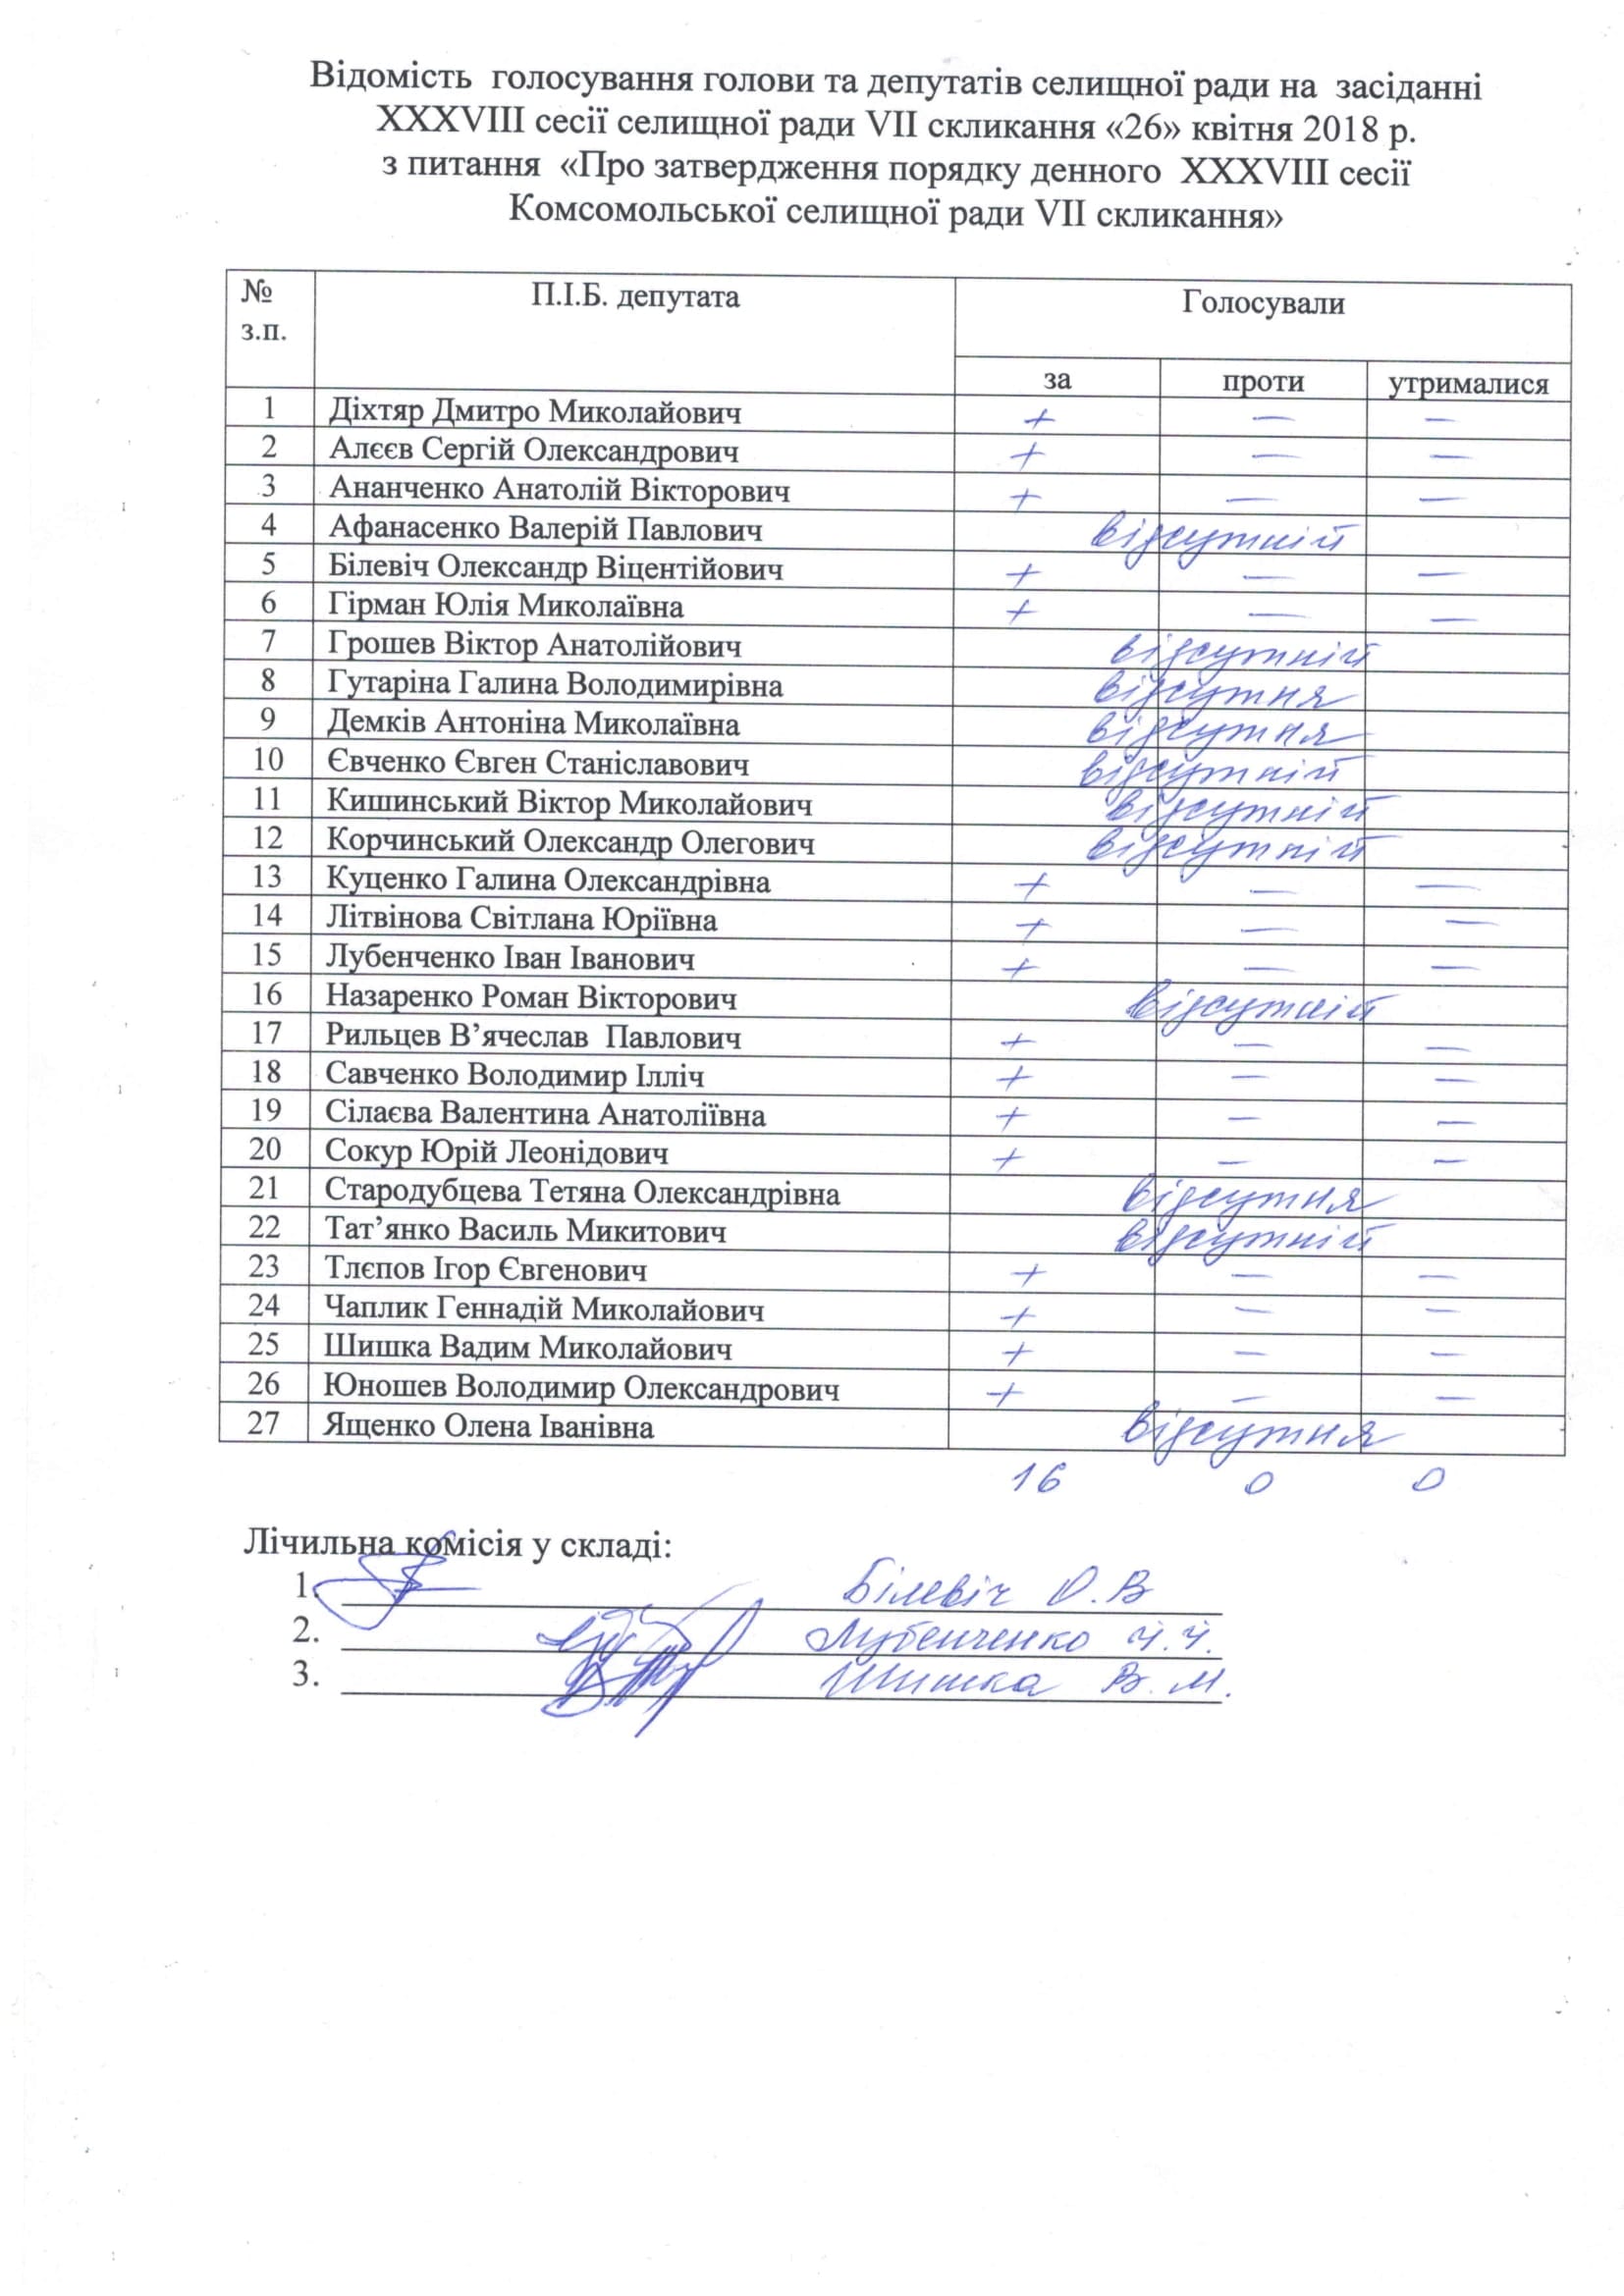 Відомість голосування голови та депутатів селищної ради на засіданні
XXXVIII сесії селищної ради VII скликання «26» квітня 2018 р.
з питання «Про затвердження порядку денного XXXVIII сесії
Комсомольської селищної ради VII скликання»
№ з.п. П.І.Б. депутата Голосували
за проти утрималися
1 Діхтяр Дмитро Миколайович + — —
2 Алєєв Сергій Олександрович + — —
3 Ананченко Анатолій Вікторович + — —
4 Афанасенко Валерій Павлович відсутній
5 Білевіч Олександр Віцентійович + — —
6 Гірман Юлія Миколаївна + — —
7 Грошев Віктор Анатолійович відсутній
8 Гутаріна Галина Володимирівна відсутня
9 Демків Антоніна Миколаївна відсутня
10 Євченко Євген Станіславович відсутній
11 Кишинський Віктор Миколайович відсутній
12 Корчинський Олександр Олегович відсутній
13 Куценко Галина Олександрівна + — —
14 Літвінова Світлана Юріївна + — —
15 Лубенченко Іван Іванович + — —
16 Назаренко Роман Вікторович відсутній
17 Рильцев В’ячеслав Павлович + — —
18 Савченко Володимир Ілліч + — —
19 Сілаєва Валентина Анатоліївна + — —
20 Сокур Юрій Леонідович + — —
21 Стародубцева Тетяна Олександрівна відсутня
22 Тат’янко Василь Микитович відсутній
23 Тлєпов Ігор Євгенович + — —
24 Чаплик Геннадій Миколайович + — —
25 Шишка Вадим Миколайович + — —
26 Юношев Володимир Олександрович + — —
27 Ященко Олена Іванівна відсутня
16 0 0
Лічильна комісія у складі:
1. Білевіч О.В
2. Лубенченко І.І.
3. Шишка В.М.